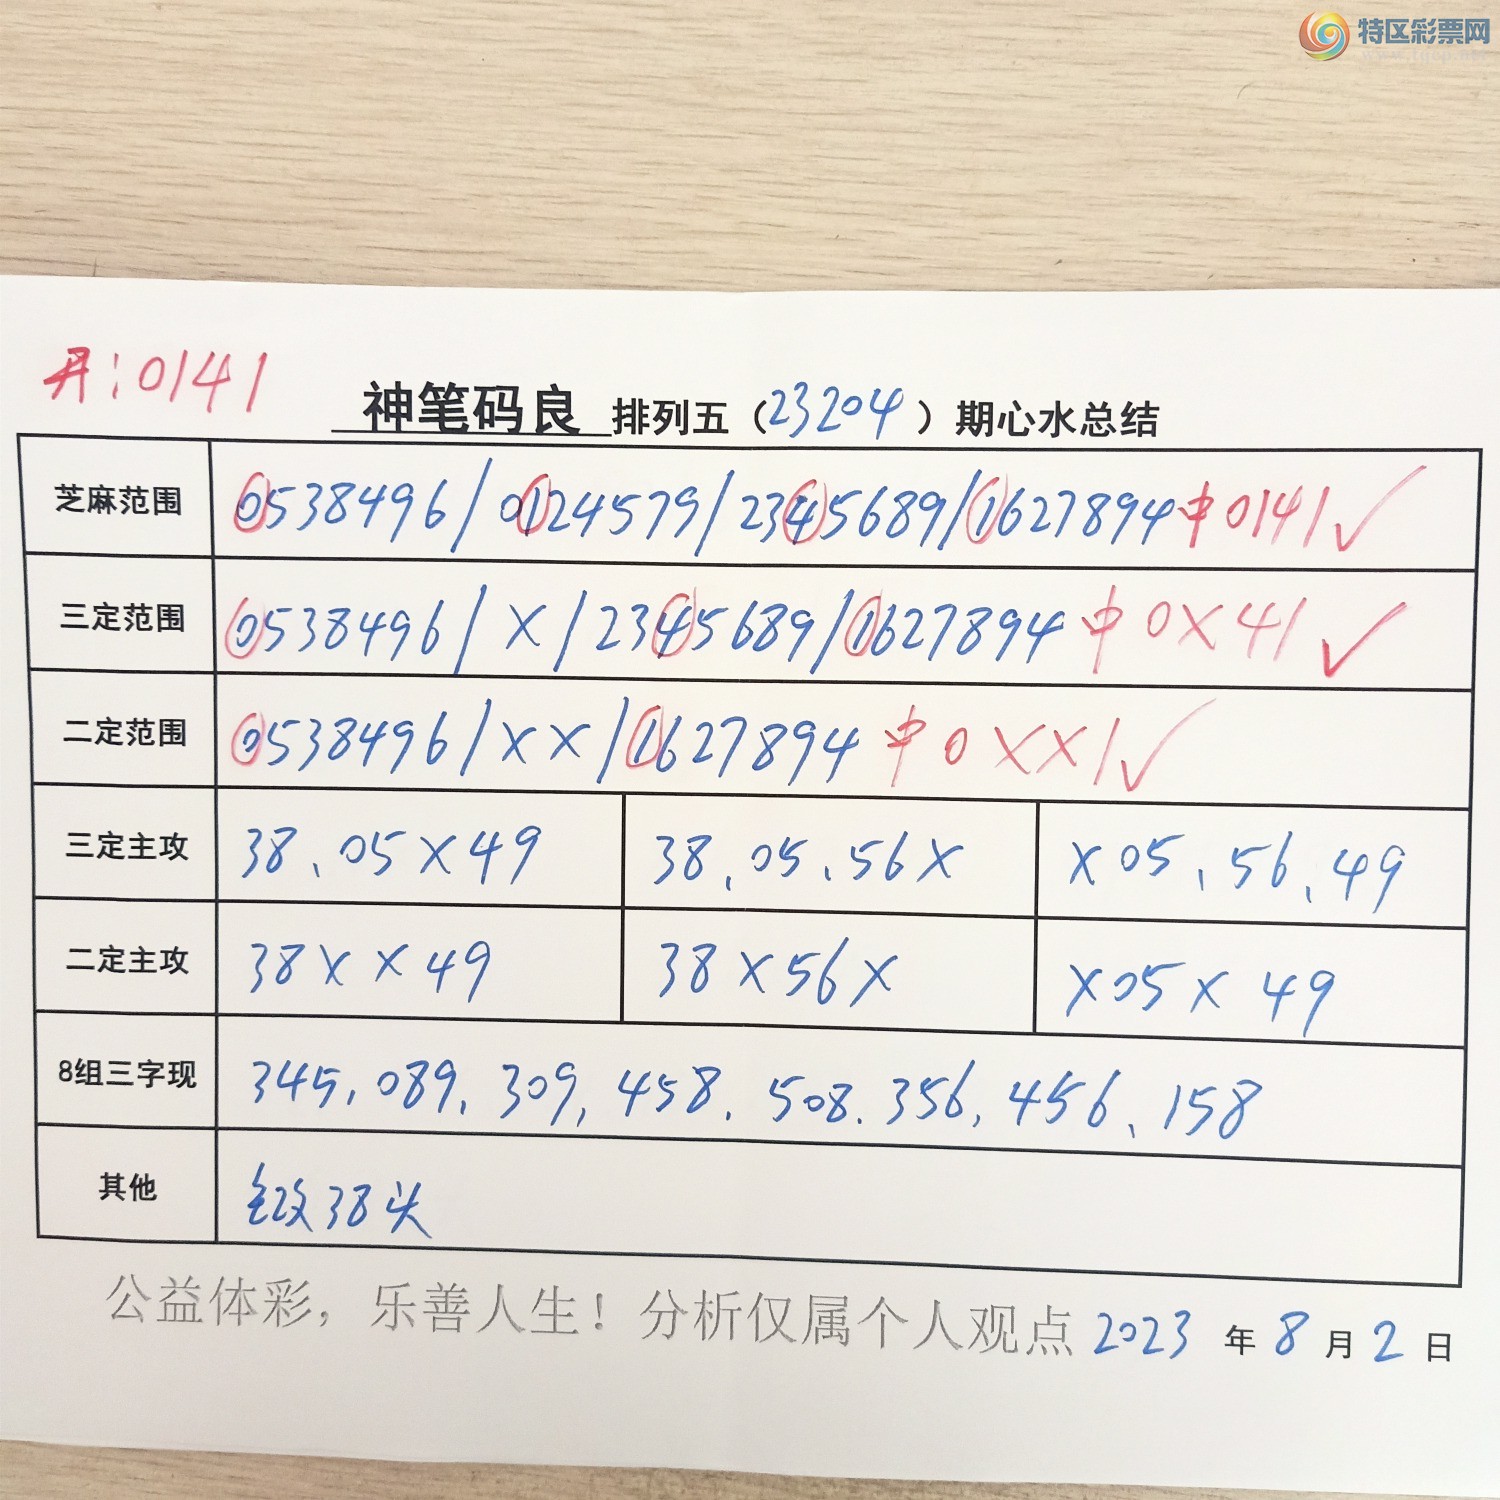 特区彩票网
www.tqcp.net
开:0141
神笔码良 排列五（23204）期心水总结
芝麻范围 0538496/0124579/2345689/1627894中0141✓
三定范围 0538496/X/2345689/1627894中0X41✓
二定范围 0538496/XX/1627894中0XX1✓
三定主攻 38、05X49 38、05、56X X05、56、49
二定主攻 38XX49 38X56X X05X49
8组三字现 345、089、309、458、508、356、456、158
其他 主攻38头
公益体彩，乐善人生！分析仅属个人观点 2023 年 8 月 2 日